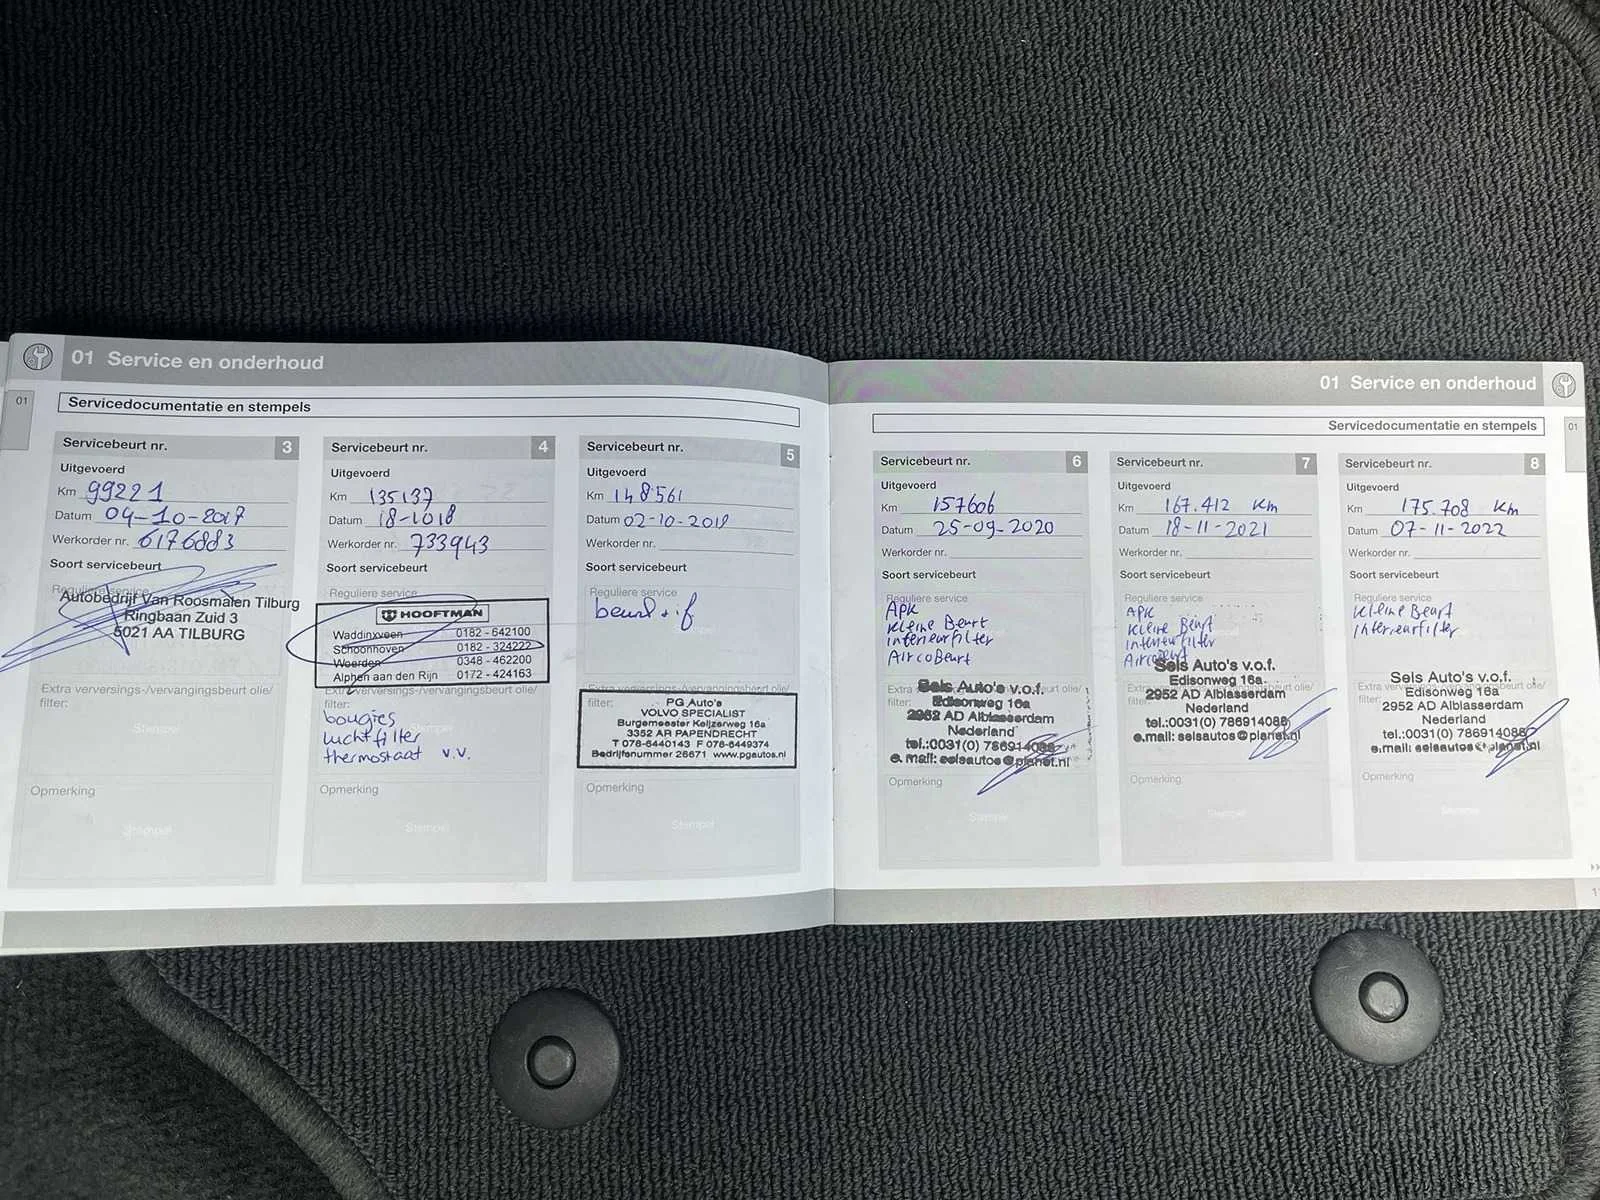 01 Service en onderhoud
01
Servicedocumentatie en stempels
Servicebeurt nr. 3
Uitgevoerd
Km 99221
Datum 04-10-2017
Werkorder nr. 6176883
Soort servicebeurt
Reguliere service
Autobedrijf Van Roosmalen Tilburg
Ringbaan Zuid 3
5021 AA TILBURG
Extra verversings-/vervangingsbeurt olie/
filter:
Stempel
Opmerking
Stempel
Servicebeurt nr. 4
Uitgevoerd
Km 135137
Datum 18-1018
Werkorder nr. 733943
Soort servicebeurt
Reguliere service
HOOFTMAN
Waddinxveen 0182 - 642100
Schoonhoven 0182 - 324222
Woerden 0348 - 462200
Alphen aan den Rijn 0172 - 424163
Extra verversings-/vervangingsbeurt olie/
filter:
bougies
luchtfilter
thermostaat v.v.
Stempel
Opmerking
Stempel
Servicebeurt nr. 5
Uitgevoerd
Km 148561
Datum 02-10-2019
Werkorder nr.
Soort servicebeurt
Reguliere service
beurt + if
Stempel
Extra verversings-/vervangingsbeurt olie/
filter:
PG Auto's
VOLVO SPECIALIST
Burgemeester Keijzerweg 16a
3352 AR PAPENDRECHT
T 078-6440143 F 078-6449374
Bedrijfsnummer 26671 www.pgautos.nl
Opmerking
Stempel
01 Service en onderhoud
01
Servicedocumentatie en stempels
Servicebeurt nr. 6
Uitgevoerd
Km 157606
Datum 25-09-2020
Werkorder nr.
Soort servicebeurt
Reguliere service
APK
Kleine Beurt
interieurfilter
AircoBeurt
Extra beurt olie/
filter:
Sels Auto's v.o.f.
Edisonweg 16a
2952 AD Alblasserdam
Nederland
tel.:0031(0) 786914088
e.mail: selsautos@planet.nl
Opmerking
Stempel
Servicebeurt nr. 7
Uitgevoerd
Km 167.412 Km
Datum 18-11-2021
Werkorder nr.
Soort servicebeurt
Reguliere service
APK
Kleine Beurt
interieurfilter
AircoBeurt
Stempel
Extra beurt olie/
filter:
Sels Auto's v.o.f.
Edisonweg 16a
2952 AD Alblasserdam
Nederland
tel.:0031(0) 786914088
e.mail: selsautos@planet.nl
Opmerking
Stempel
Servicebeurt nr. 8
Uitgevoerd
Km 175.708 Km
Datum 07-11-2022
Werkorder nr.
Soort servicebeurt
Reguliere service
Kleine Beurt
interieurfilter
Extra olie/
filter:
Sels Auto's v.o.f.
Edisonweg 16a
2952 AD Alblasserdam
Nederland
tel.:0031(0) 786914088
e.mail: selsautos@planet.nl
Opmerking
Stempel